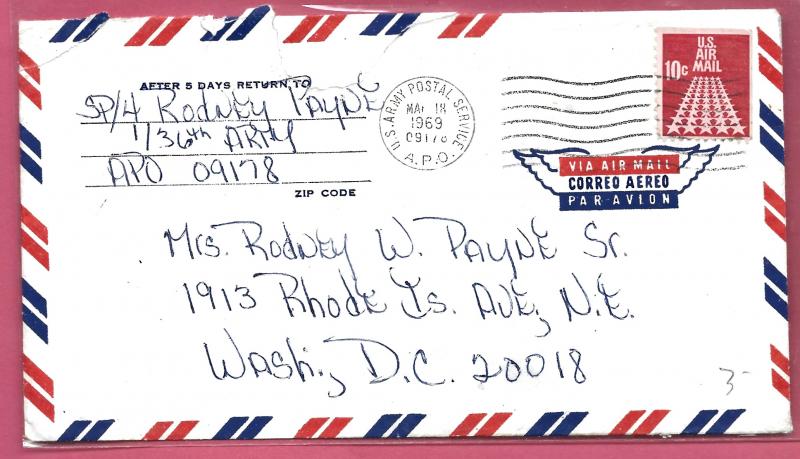 AFTER 5 DAYS RETURN TO
SP/4 Rodney Payne
1/36th ARTY
APO 09178
ZIP CODE
U.S. ARMY POSTAL SERVICE
MAR 18
1969
09178
A.P.O.
U.S.
AIR
MAIL
10c
VIA AIR MAIL
CORREO AEREO
PAR AVION
Mrs. Rodney W. Payne Sr.
1913 Rhode Is. Ave, N.E.
Wash., D.C. 20018
3-